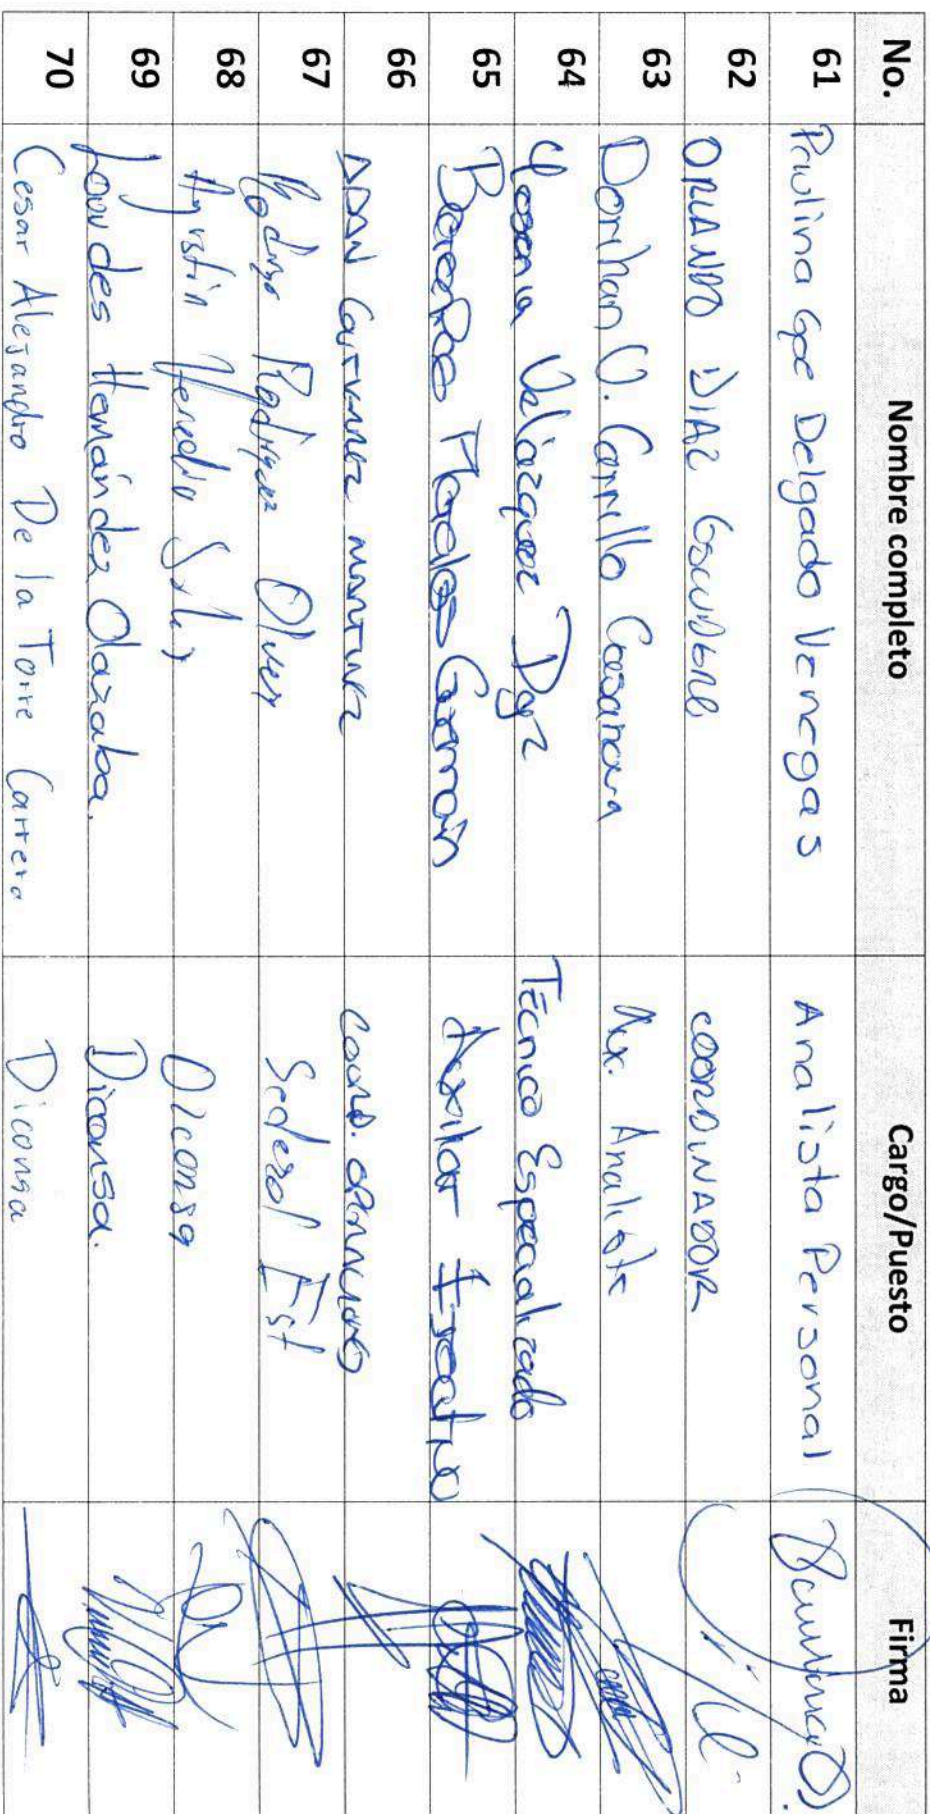 No. Nombre completo Cargo/Puesto Firma
61 Paulina Gpe Delgado Venegas Analista Personal
62 ORLANDO DIAZ ESCUDERO COORDINADOR
63 Dorihan V. Carrillo Casanova Aux. Analista
64 Yesenia Velázquez Dgz Técnico Especializado
65 Berenice Morales Garrido Auxiliar Ejecutivo
66 ADAN MARTINEZ COORD. OPERATIVO
67 Rodrigo Rodriguez Oliver Sedesol Est
68 Agustín Heredia Diconsa
69 Lourdes Hernández Olazaba. Diconsa.
70 Cesar Alejandro De la Torre Carrera Diconsa